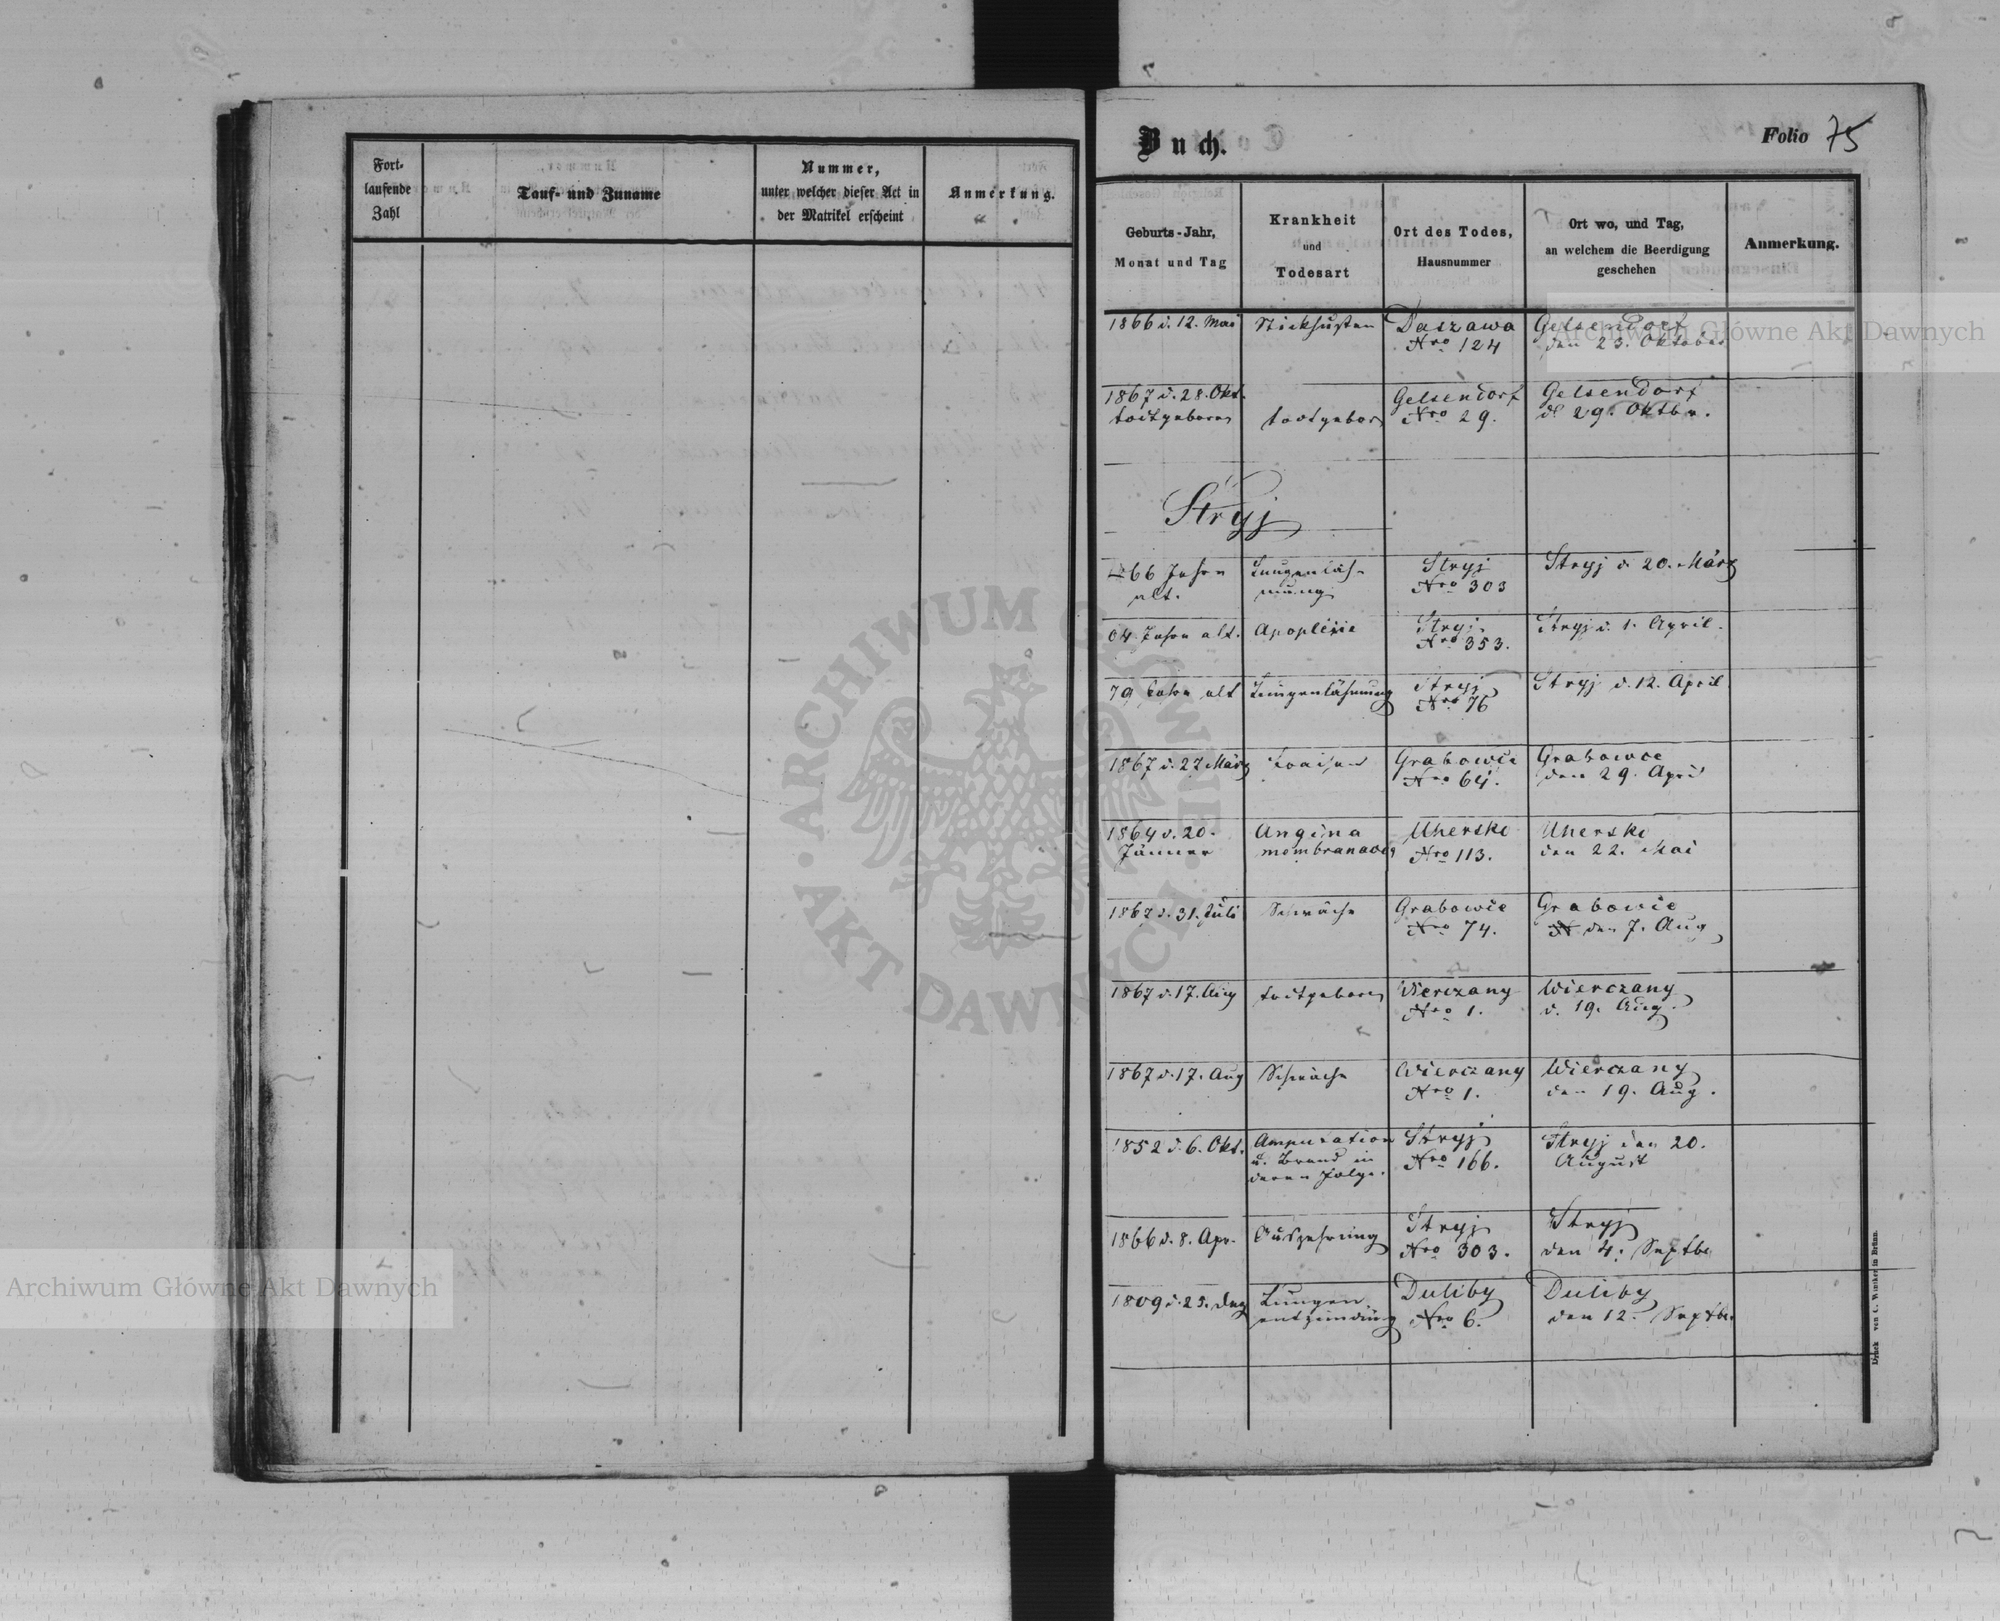 Fort-
laufende
Zahl
Tauf- und Zuname
Nummer,
unter welcher dieser Act in
der Matrikel erscheint
Anmerkung.
Buch.
Folio 75
Geburts-Jahr,
Monat und Tag
Krankheit
und
Todesart
Ort des Todes,
Hausnummer
Ort wo, und Tag,
an welchem die Beerdigung
geschehen
Anmerkung.
1866 d. 12. Mai
Stickhusten
Daszawa
Nro 124
Gelsendorf
den 23. Oktober
1867 d. 28. Okt.
todtgeboren
todtgeboren
Gelsendorf
Nro 29.
Gelsendorf
d. 29. Oktbr.
Stryj
66 Jahre
alt.
Lungenläh-
mung
Stryj
Nro 303
Stryj d. 20. März
64 Jahre alt.
Apoplexie
Stryj
Nro 353.
Stryj d. 1. April.
79 Jahre alt
Lungenlähmung
Stryj
Nro 76
Stryj d. 12. April
1867 d. 27 März
Fraisen
Grabowce
Nro 64.
Grabowce
den 29. April
1864 d. 20.
Jänner
Angina
membranacea
Uherske
Nro 113.
Uherske
den 22. Mai
1867 d. 31. Juli
Schwäche
Grabowce
Nro 74.
Grabowce
den 7. Aug
1867 d. 17. Aug
todtgeboren
Wierczany
Nro 1.
Wierczany
d. 19. Aug.
1867 d. 17. Aug
Schwäche
Wierczany
Nro 1.
Wierczany
den 19. Aug.
1852 d. 6. Okt.
Amputation
u. Brand in
deren Folge.
Stryj
Nro 166.
Stryj den 20.
August
1866 d. 8. Apr.
Auszehrung
Stryj
Nro 303.
Stryj
den 4. Septbr
1809 d. 25. Dez
Lungen
entzündung
Duliby
Nro 6.
Duliby
den 12. Septbr.
Druck von C. Winiker in Brünn.
Archiwum Główne Akt Dawnych
Archiwum Główne Akt Dawnych
ARCHIWUM GŁÓWNE
AKT DAWNYCH